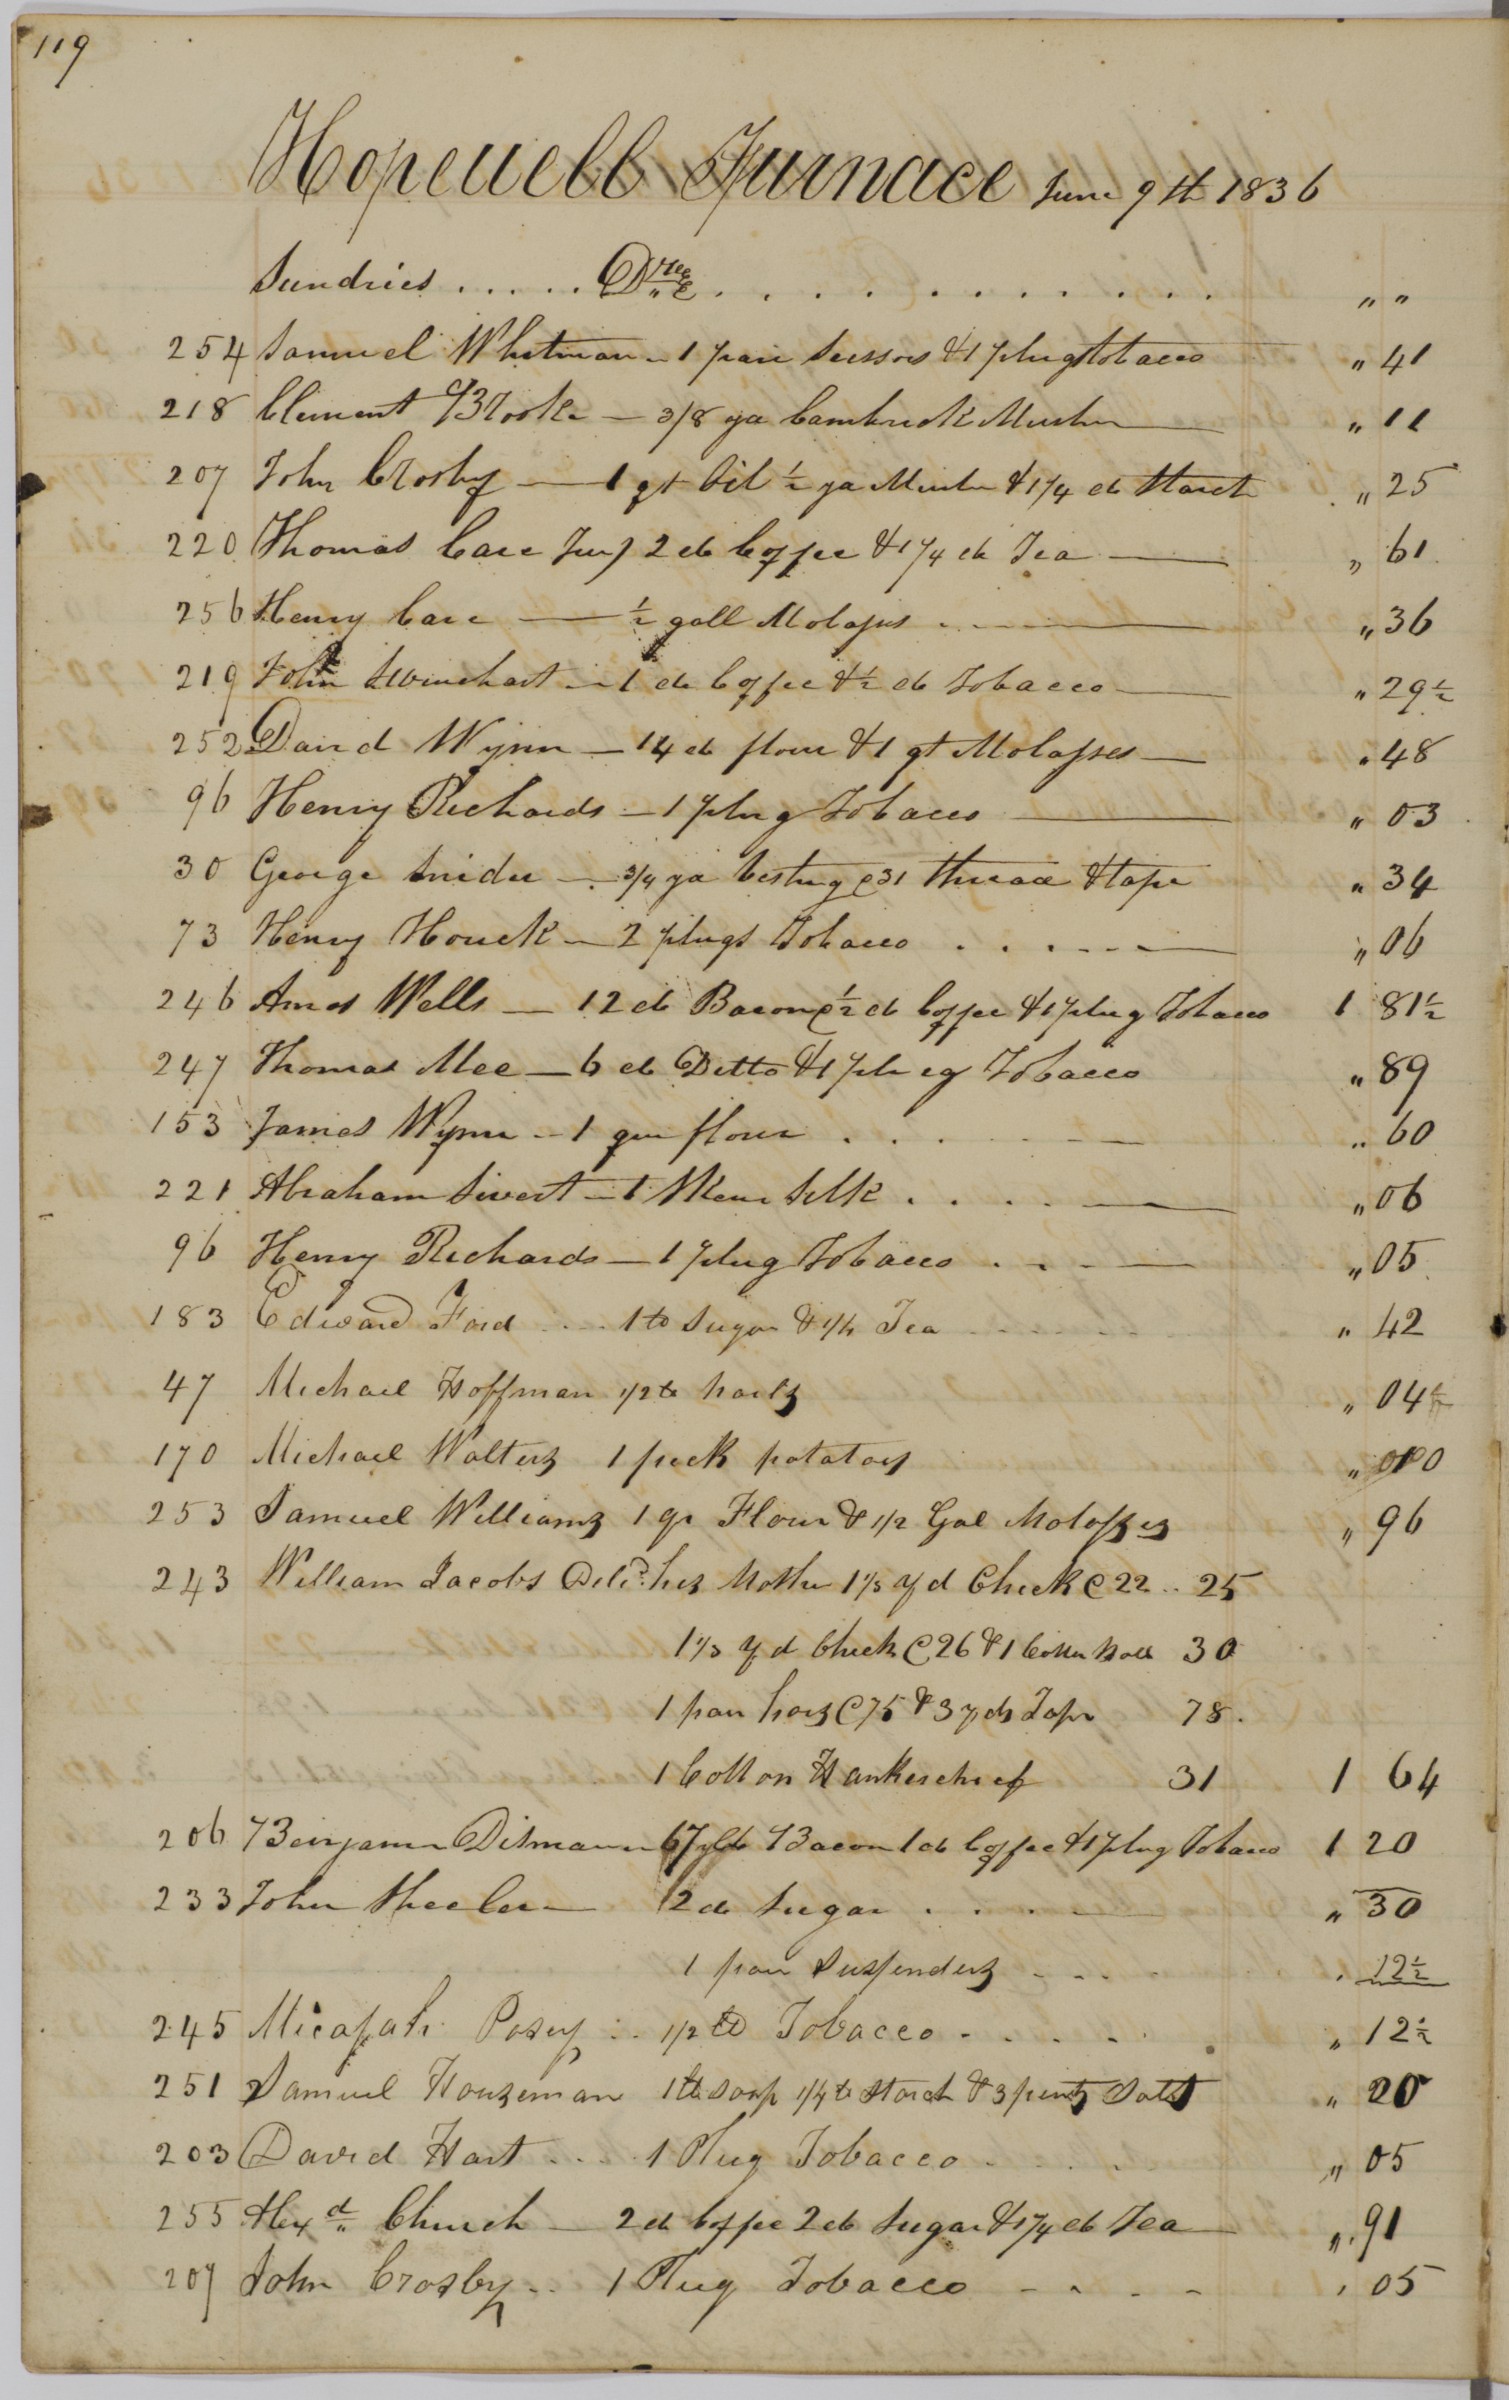 119
Hopewell Furnace June 9th 1836
Sundries ..... Dr ............ " "
254 Samuel Whitman - 1 pair Scissors & 1 plug Tobacco " 41
218 Clement Brooke - 3/8 yd Cambrick Muslin " 11
207 John Crosby - 1 qt Oil ½ yd Muslin & 1/4 lb Starch " 25
220 Thomas Care Junr 2 lb Coffee & 1/4 lb Tea " 61
256 Henry Care - ½ gall Molasses " 36
219 John Swinehart - 1 lb Coffee & ½ lb Tobacco " 29½
252 David Wynn - 14 lb flour & 1 qt Molasses " 48
96 Henry Richards - 1 plug Tobacco " 03
30 George Snider - 3/4 yd Vesting @ 31 thread & tape " 34
73 Henry Houck - 2 plugs Tobacco . . . . " 06
246 Amos Wells - 12 lb Bacon @ ½ lb Coffee & 1 plug Tobacco 1 81½
247 Thomas Mee - 6 lb Ditto & 1 plug Tobacco " 89
153 James Wynn - 1 qur flour . . . " 60
221 Abraham Sivert - 1 Skein Silk . . . . " 06
96 Henry Richards - 1 plug Tobacco . . . " 05
183 Edward Ford ... 1 lb Sugar & 1/4 Tea " 42
47 Michael Hoffman 1/2 lb nails " 04½
170 Michael Walters 1 peck potatoes "
253 Samuel Williams 1 qr Flour & 1/2 Gal Molasses " 96
243 William Jacobs Deld his Mother 1 1/3 yd Check @ 22 .. 25
1 1/3 yd Check @ 26 & 1 Cotton 30
1 pair @ 75 & 3 yds Tape 78.
1 Cotton Hankerchief 31 1 64
206 Benjamin Ditmann lb Bacon 1 lb Coffee & 1 plug Tobacco 1 20
233 John Sheeler - 2 lb Sugar . . . " 30
1 pair Suspenders . . . . 12½
245 Micajah Posey .. 1/2 lb Tobacco . . . . " 12½
251 Samuel Houseman 1 lb soap 1/4 lb Starch & 3 pints Salt " 20
203 David Hart ... 1 Plug Tobacco . . . " 05
255 Alexd Church - 2 lb Coffee 2 lb Sugar & 1/4 lb Tea ". 91
207 John Crosby .. 1 Plug Tobacco - - - - " 05